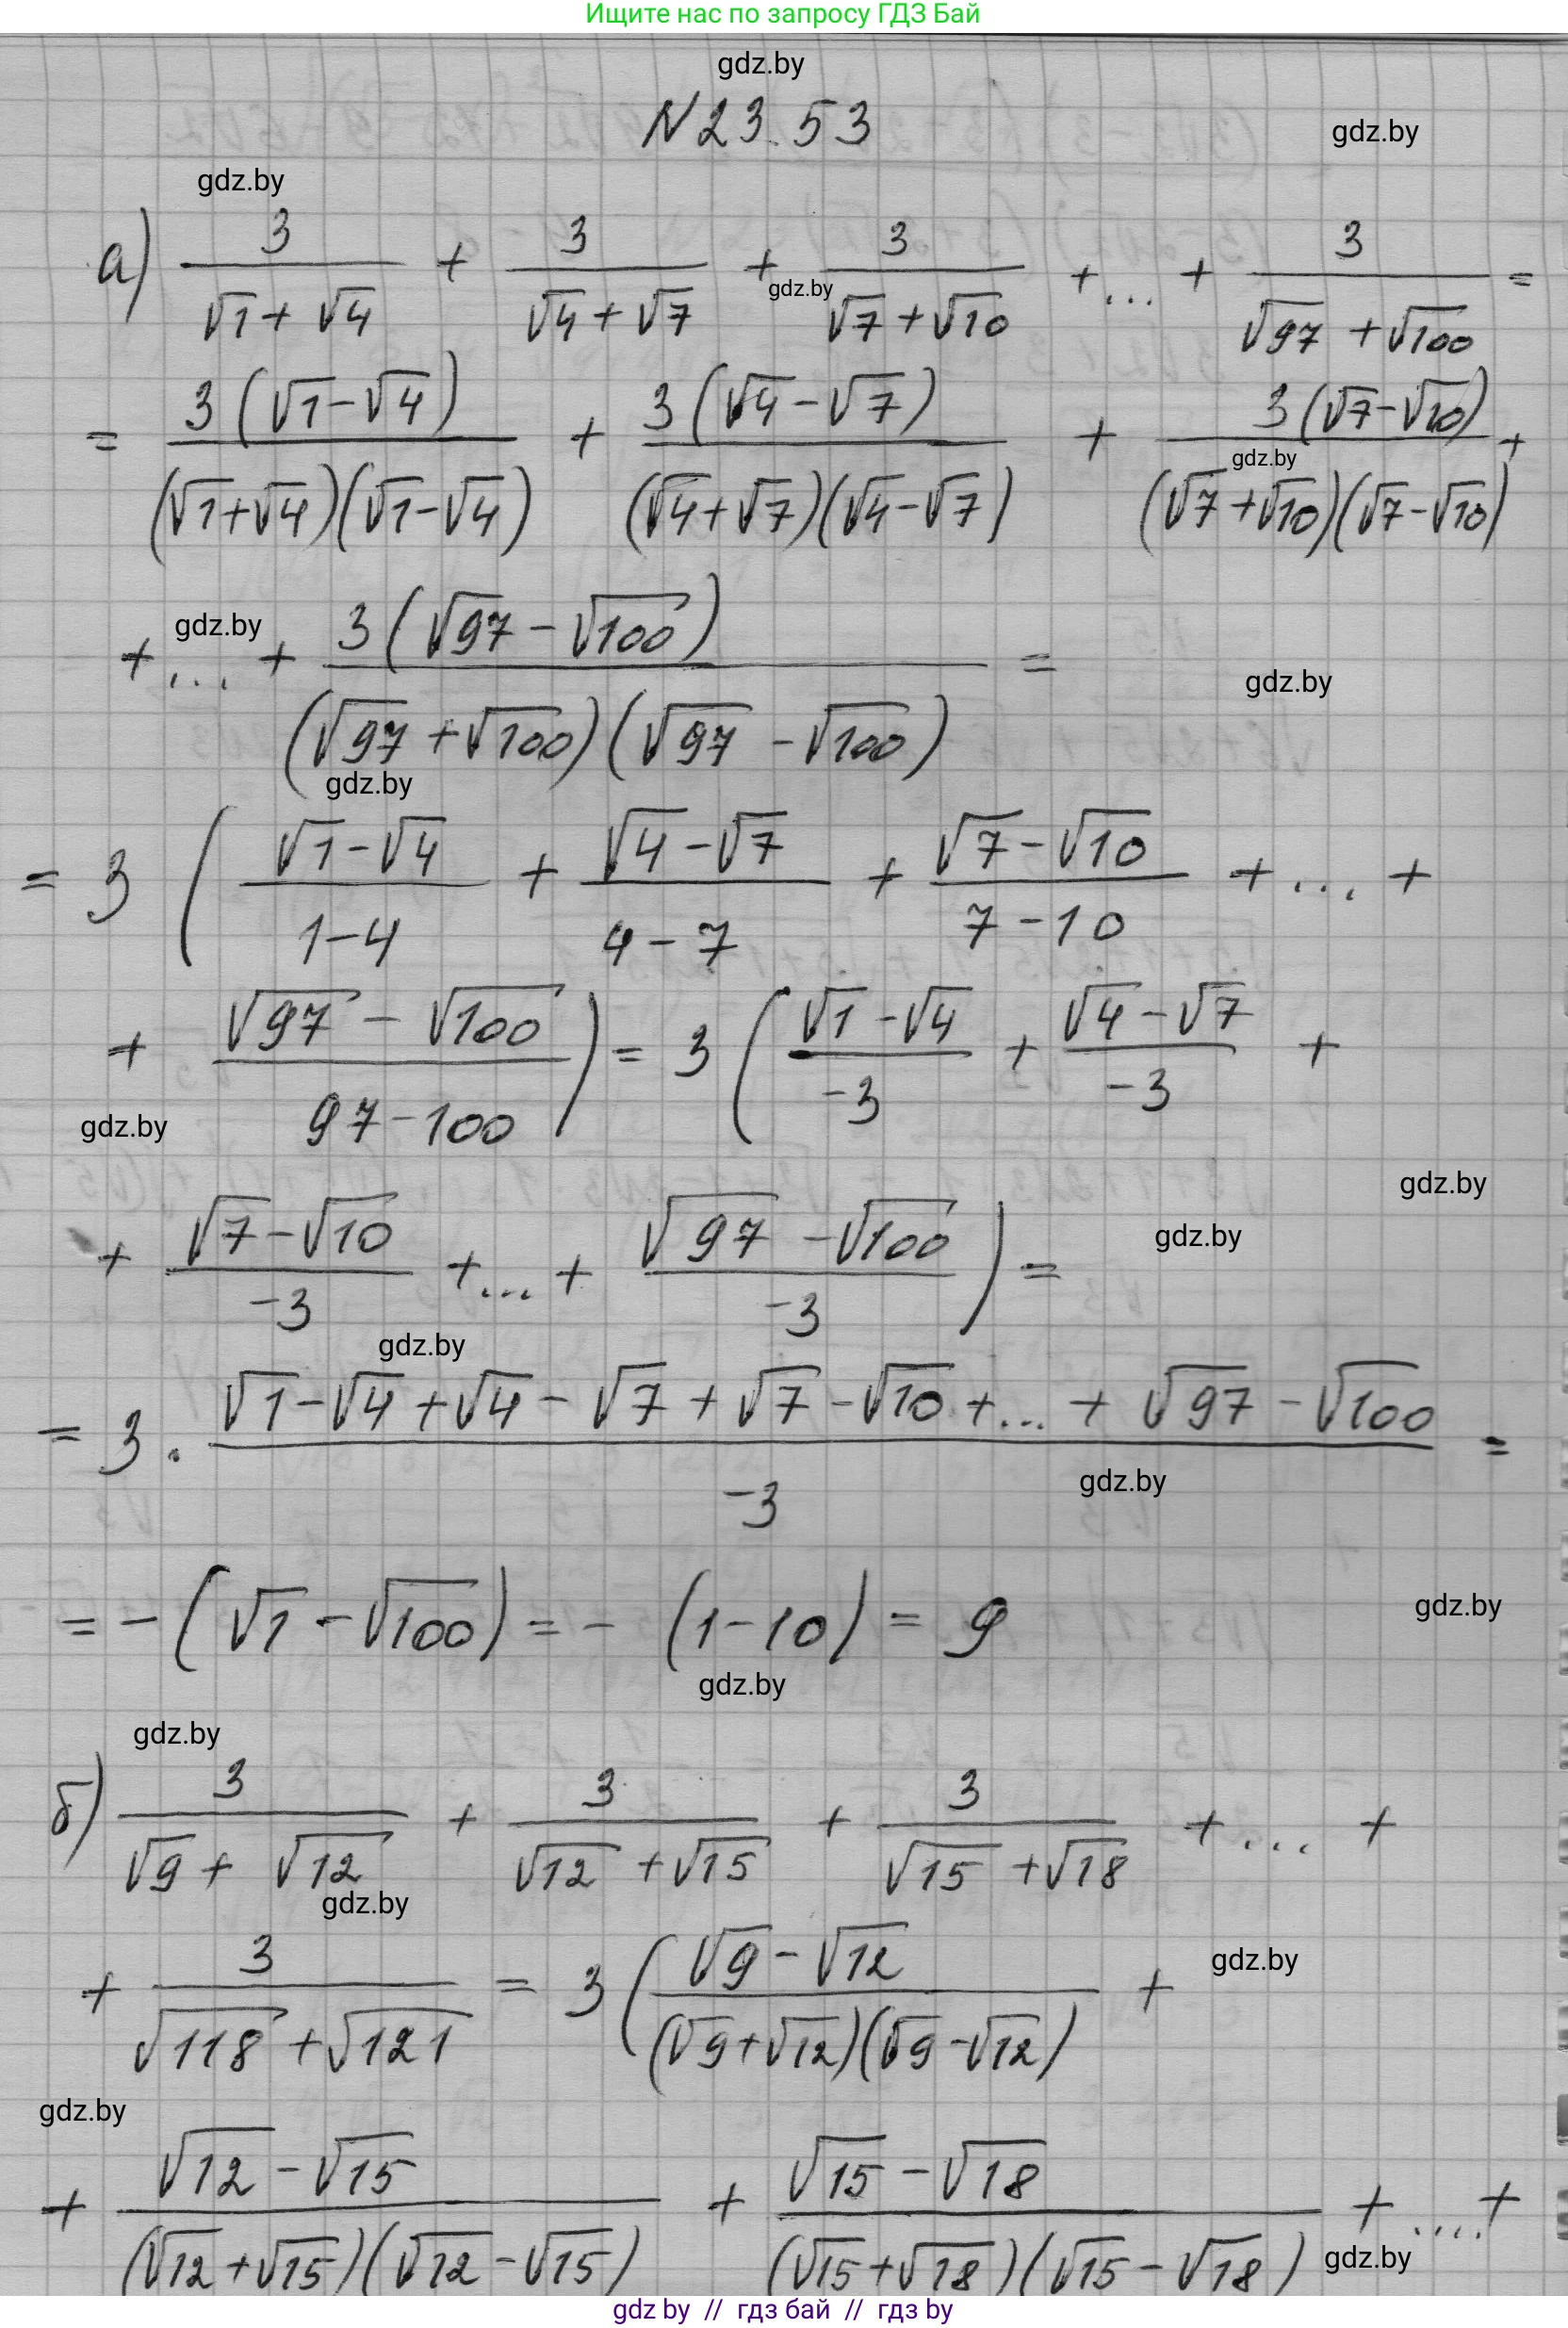 Ищите нас по запросу ГДЗ Бай
gdz.by
N 23.53
gdz.by
gdz.by
а) 3/(√1 + √4) + 3/(√4 + √7) + 3/(√7 + √10) + ... + 3/(√97 + √100) =
gdz.by
= 3(√1 - √4)/((√1 + √4)(√1 - √4)) + 3(√4 - √7)/((√4 + √7)(√4 - √7)) + 3(√7 - √10)/((√7 + √10)(√7 - √10)) +
gdz.by
gdz.by
+ ... + 3(√97 - √100)/((√97 + √100)(√97 - √100)) =
gdz.by
gdz.by
= 3 ( (√1 - √4)/(1 - 4) + (√4 - √7)/(4 - 7) + (√7 - √10)/(7 - 10) + ... +
+ (√97 - √100)/(97 - 100) ) = 3 ( (√1 - √4)/(-3) + (√4 - √7)/(-3) +
gdz.by
gdz.by
gdz.by
+ (√7 - √10)/(-3) + ... + (√97 - √100)/(-3) ) =
gdz.by
= 3 · (√1 - √4 + √4 - √7 + √7 - √10 + ... + √97 - √100)/(-3) =
gdz.by
= - (√1 - √100) = - (1 - 10) = 9
gdz.by
gdz.by
gdz.by
б) 3/(√9 + √12) + 3/(√12 + √15) + 3/(√15 + √18) + ... +
gdz.by
+ 3/(√118 + √121) = 3 ( (√9 - √12)/((√9 + √12)(√9 - √12)) +
gdz.by
gdz.by
+ (√12 - √15)/((√12 + √15)(√12 - √15)) + (√15 - √18)/((√15 + √18)(√15 - √18)) + .... +
gdz.by
gdz by // гдз бай // гдз by